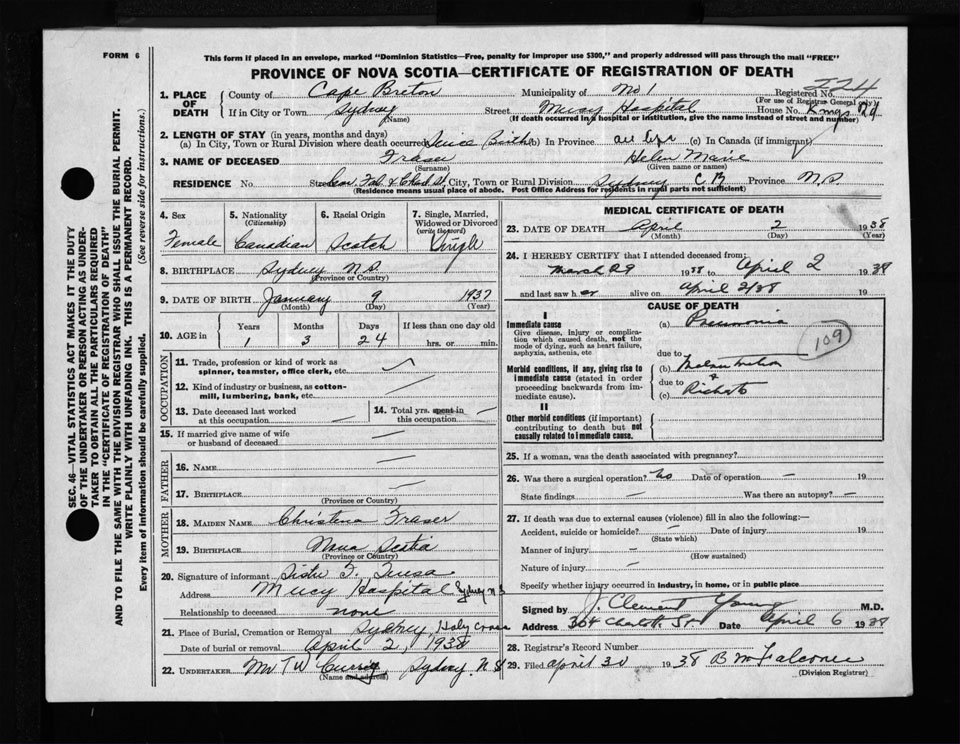 FORM 6
This form if placed in an envelope, marked "Dominion Statistics—Free, penalty for improper use $300," and properly addressed will pass through the mail "FREE"
PROVINCE OF NOVA SCOTIA—CERTIFICATE OF REGISTRATION OF DEATH
SEC. 46—VITAL STATISTICS ACT MAKES IT THE DUTY
OF THE UNDERTAKER OR PERSON ACTING AS UNDER-
TAKER TO OBTAIN ALL THE PARTICULARS REQUIRED
IN THE "CERTIFICATE OF REGISTRATION OF DEATH"
AND TO FILE THE SAME WITH THE DIVISION REGISTRAR WHO SHALL ISSUE THE BURIAL PERMIT.
WRITE PLAINLY WITH UNFADING INK. THIS IS A PERMANENT RECORD.
Every item of information should be carefully supplied. (See reverse side for instructions.)
1. PLACE OF DEATH County of Cape Breton Municipality of No 1 Registered No.
(For use of Registrar General only)
If in City or Town Sydney Street Mercy Hospital House No. Kings Rd
(Name) (If death occurred in a hospital or institution, give the name instead of street and number)
2. LENGTH OF STAY (in years, months and days)
(a) In City, Town or Rural Division where death occurred Since Birth (b) In Province all life (c) In Canada (if immigrant)
3. NAME OF DECEASED Fraser Helen Marie
(Surname) (Given name or names)
RESIDENCE No. Street Cor. & St, City, Town or Rural Division Sydney C.B Province N.S.
(Residence means usual place of abode. Post Office Address for residents in rural parts not sufficient)
4. Sex Female
5. Nationality (Citizenship) Canadian
6. Racial Origin Scotch
7. Single, Married, Widowed or Divorced (write the word) Single
8. BIRTHPLACE Sydney N.S.
(Province or Country)
9. DATE OF BIRTH January 9 1937
(Month) (Day) (Year)
10. AGE in Years Months Days If less than one day old
1 3 24 hrs. or min.
OCCUPATION
11. Trade, profession or kind of work as spinner, teamster, office clerk, etc.
12. Kind of industry or business, as cotton-mill, lumbering, bank, etc. —
13. Date deceased last worked at this occupation —
14. Total yrs. spent in this occupation —
15. If married give name of wife or husband of deceased —
FATHER
16. NAME —
17. BIRTHPLACE —
(Province or Country)
MOTHER
18. MAIDEN NAME Christena Fraser
19. BIRTHPLACE Nova Scotia
(Province or Country)
20. Signature of informant Sister T. Teresa
Address Mercy Hospital Sydney N.S
Relationship to deceased none
21. Place of Burial, Cremation or Removal Sydney, Holy Cross
Date of burial or removal April 2, 1938
22. UNDERTAKER Mr T W Currey Sydney N.S
(Name and address)
MEDICAL CERTIFICATE OF DEATH
23. DATE OF DEATH April 2 1938
(Month) (Day) (Year)
24. I HEREBY CERTIFY that I attended deceased from:
March 29 1938 to April 2 1938
and last saw her alive on April 2/38 19
CAUSE OF DEATH
I
Immediate cause
Give disease, injury or complication which caused death, not the mode of dying, such as heart failure, asphyxia, asthenia, etc
(a) Pneumonia
109
due to
Morbid conditions, if any, giving rise to immediate cause (stated in order proceeding backwards from immediate cause).
(b) Malnutrition
due to &
(c) Rickets
II
Other morbid conditions (if important) contributing to death but not causally related to immediate cause.
25. If a woman, was the death associated with pregnancy?
26. Was there a surgical operation? No Date of operation — 19
State findings — Was there an autopsy? —
27. If death was due to external causes (violence) fill in also the following:—
Accident, suicide or homicide? — Date of injury 19
(State which)
Manner of injury —
(How sustained)
Nature of injury —
Specify whether injury occurred in industry, in home, or in public place
Signed by J. Clement Young M.D.
Address 364 Charlotte St Date April 6 1938
28. Registrar's Record Number
29. Filed April 30 1938 B M Falconer
(Division Registrar)